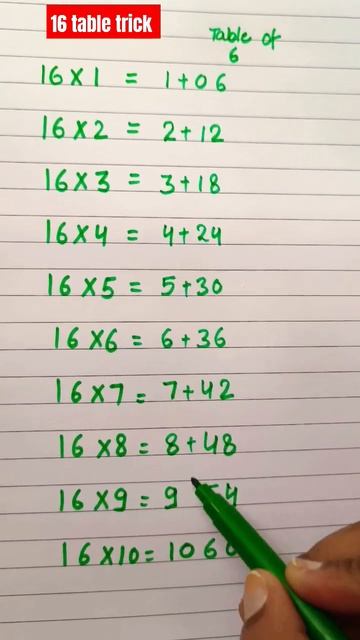 16 table trick
Table of
6
16 X 1 = 1+06
16 X 2 = 2+12
16 X 3 = 3+18
16 X 4 = 4+24
16 X 5 = 5+30
16 X 6 = 6+36
16 X 7 = 7+42
16 X 8 = 8+48
16 X 9 = 9 54
16 X 10 = 10 60